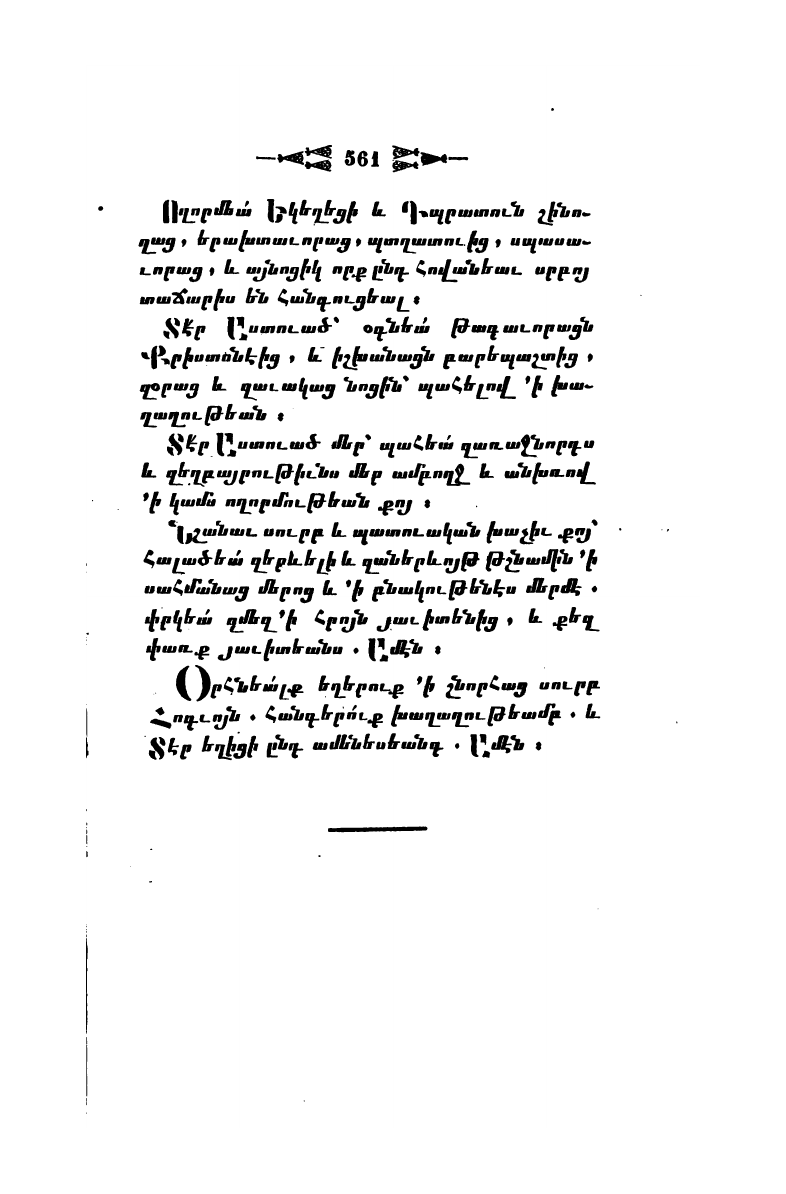 561
Ողորմեա՛ Եկեղեցի և Դպրատուն շինո-
ղաց, երախտաւորաց, պտղատուից, սպասա-
ւորաց, և այնոցիկ որք ընդ հովանեաւ սրբոյ
տաճարիս են հանգուցեալ։
Տէր Աստուած՝ օգնեա՛ Թագաւորացն
Քրիստոնէից, և իշխանացն բարեպաշտից,
զօրաց և զաւակաց նոցին՝ պահելով ՚ի խա-
ղաղութեան։
Տէր Աստուած մեր՝ պահեա՛ զառաջնորդս
և զեղբայրութիւնս մեր ամբողջ և անխռով
՚ի կամս ողորմութեան քոյ։
Նշանաւ սուրբ և պատուական խաչիւ քոյ՝
հալածեա՛ զերևելի և զաներևոյթ թշնամին ՚ի
սահմանաց մերոց և ՚ի բնակութենէս մերմէ.
փրկեա՛ զմեզ ՚ի հրոյն յաւիտենից, և քեզ
փառք յաւիտեանս. Ամէն։
Օրհնեա՛լք եղերուք ՚ի շնորհաց սուրբ
Հոգւոյն. հանգերո՛ւք խաղաղութեամբ. և
Տէր եղիցի ընդ ամենեսեանդ. Ամէն։